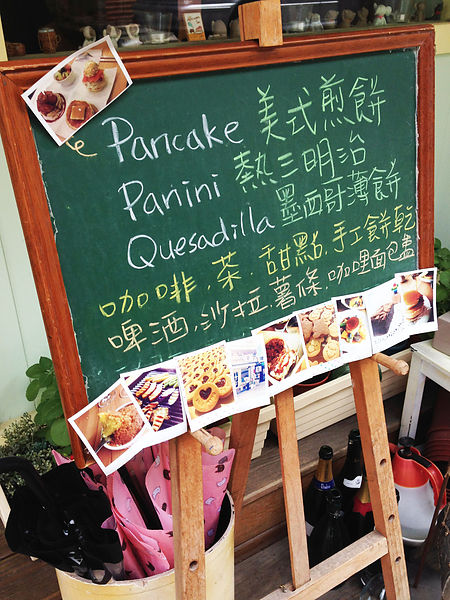 Pancake 美式煎餅
Panini 熱三明治
Quesadilla 墨西哥薄餅
咖啡.茶.甜點.手工餅乾
啤酒.沙拉.薯條.咖哩麵包盅